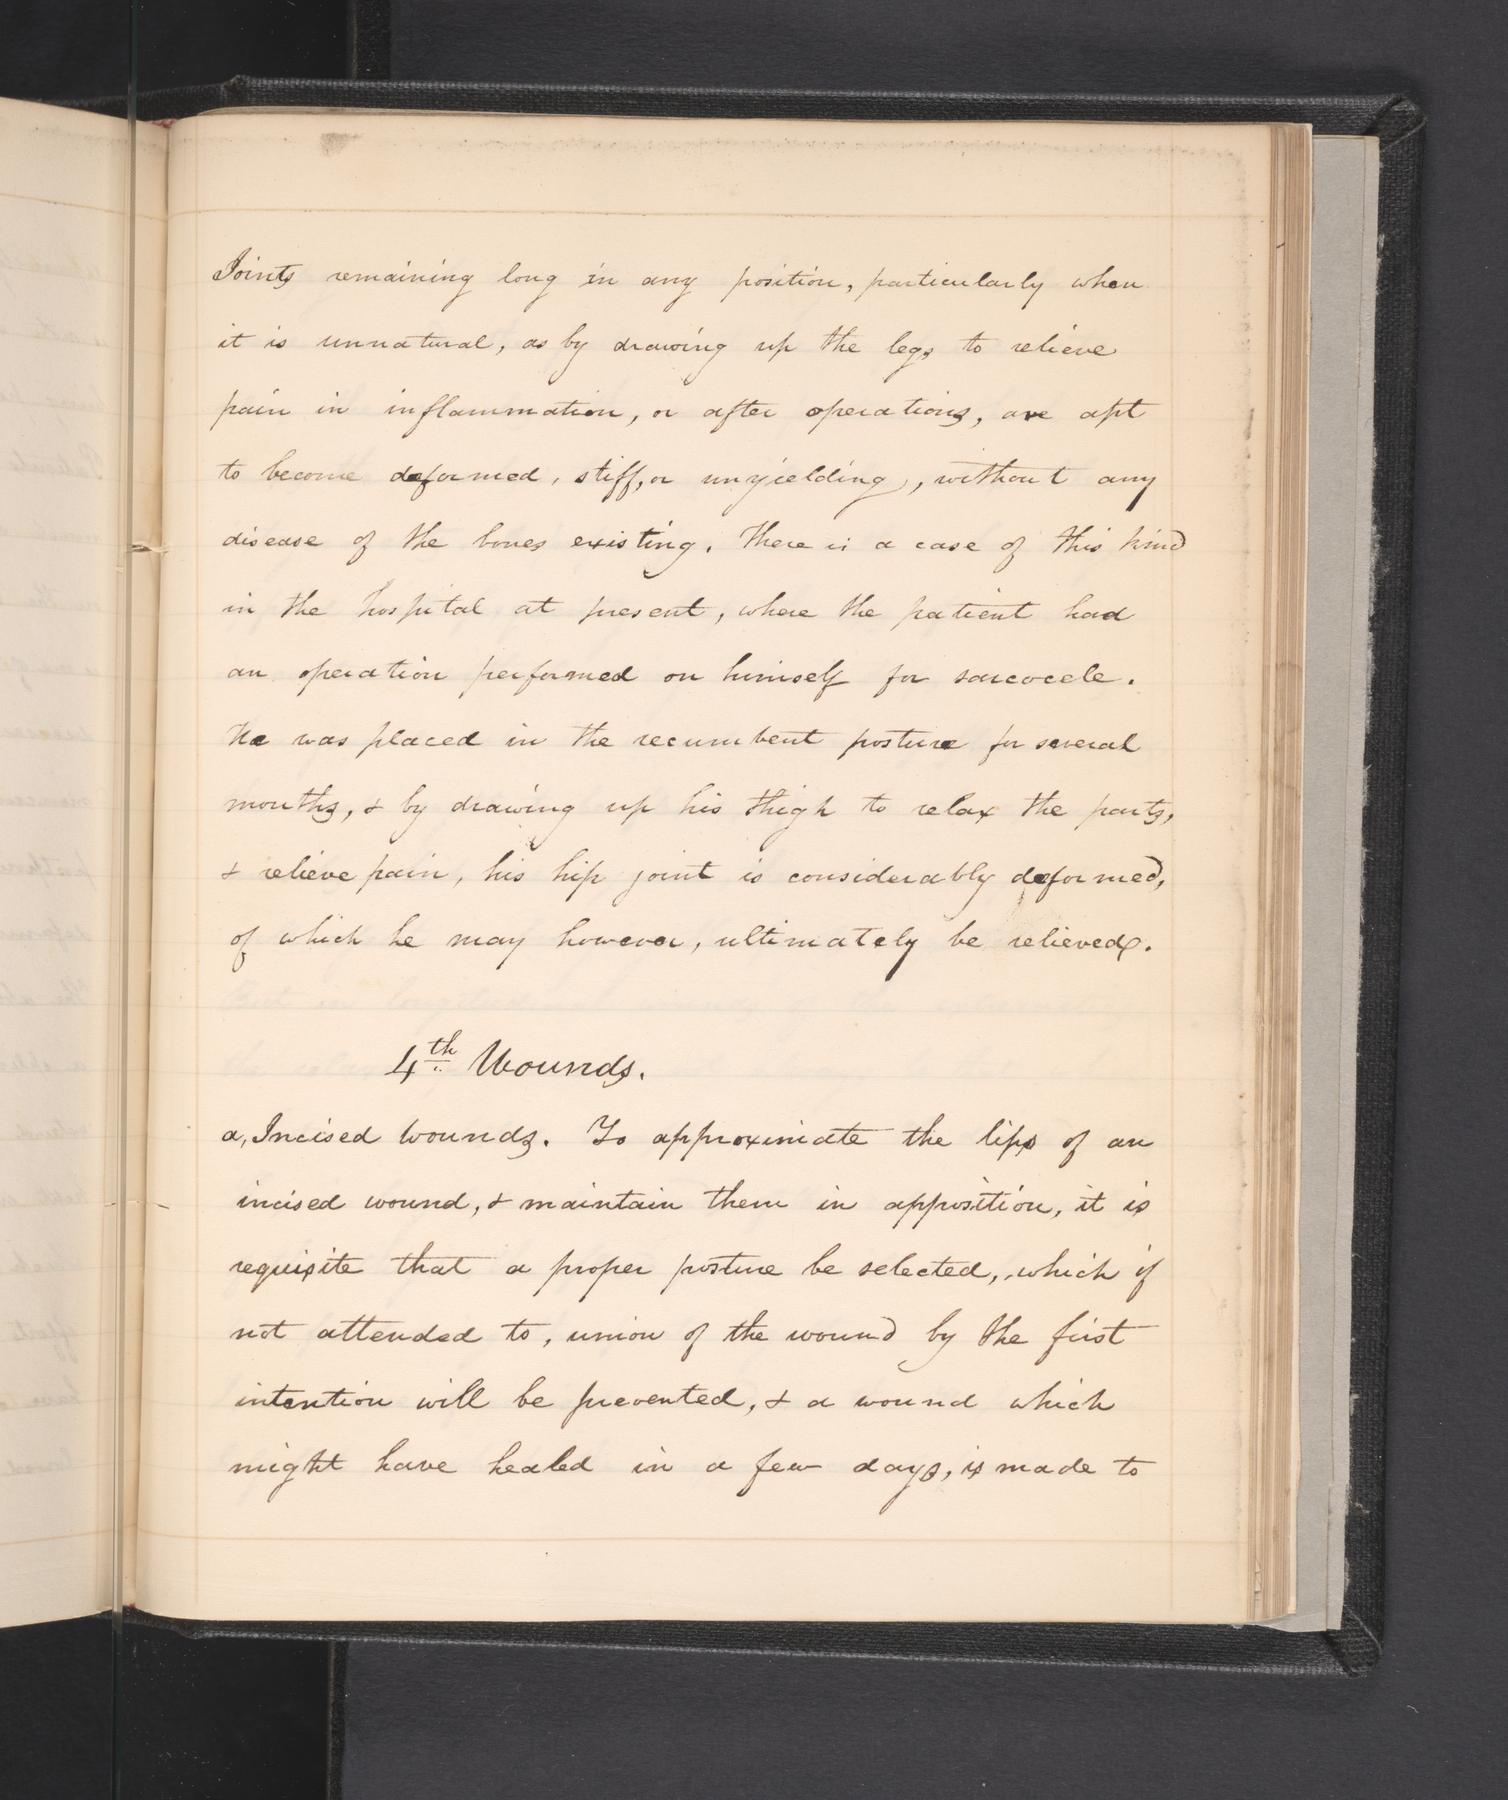 Joints remaining long in any position, particularly when
it is unnatural, as by drawing up the legs to relieve
pain in inflammation, or after operations, are apt
to become deformed, stiff, or unyielding, without any
disease of the bones existing. There is a case of this kind
in the hospital at present, where the patient had
an operation performed on himself for sarcocele.
He was placed in the recumbent posture for several
months, & by drawing up his thigh to relax the parts,
& relieve pain, his hip joint is considerably deformed,
of which he may however, ultimately be relieved.
4th Wounds.
a, Incised wounds. To approximate the lips of an
incised wound, & maintain them in apposition, it is
requisite that a proper posture be selected, which if
not attended to, union of the wound by the first
intention will be prevented, & a wound which
might have healed in a few days, is made to